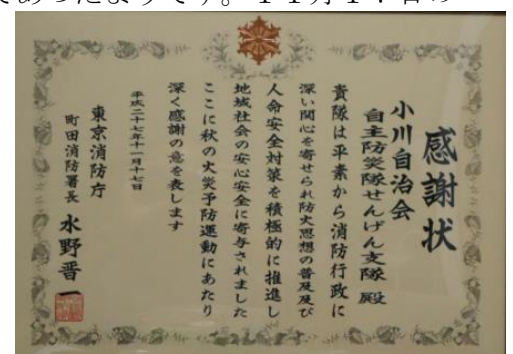 であったようです。１１月１７日の
感謝状
小川自治会
自主防災隊せんげん支隊 殿
貴隊は平素から消防行政に
深い関心を寄せられ防火思想の普及及び
人命安全対策を積極的に推進し
地域社会の安心安全に寄与されました
ここに秋の火災予防運動にあたり
深く感謝の意を表します
平成二十七年十一月十七日
東京消防庁
町田消防署長 水野晋一